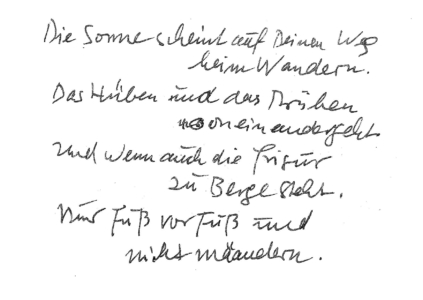 Die Sonne scheint auf Deinen Weg
beim Wandern.
Das Hüben und das Drüben
voneinandergeht
und wenn auch die Frisur
zu Berge steht.
Nur Fuß vor Fuß und
nicht mäandern.